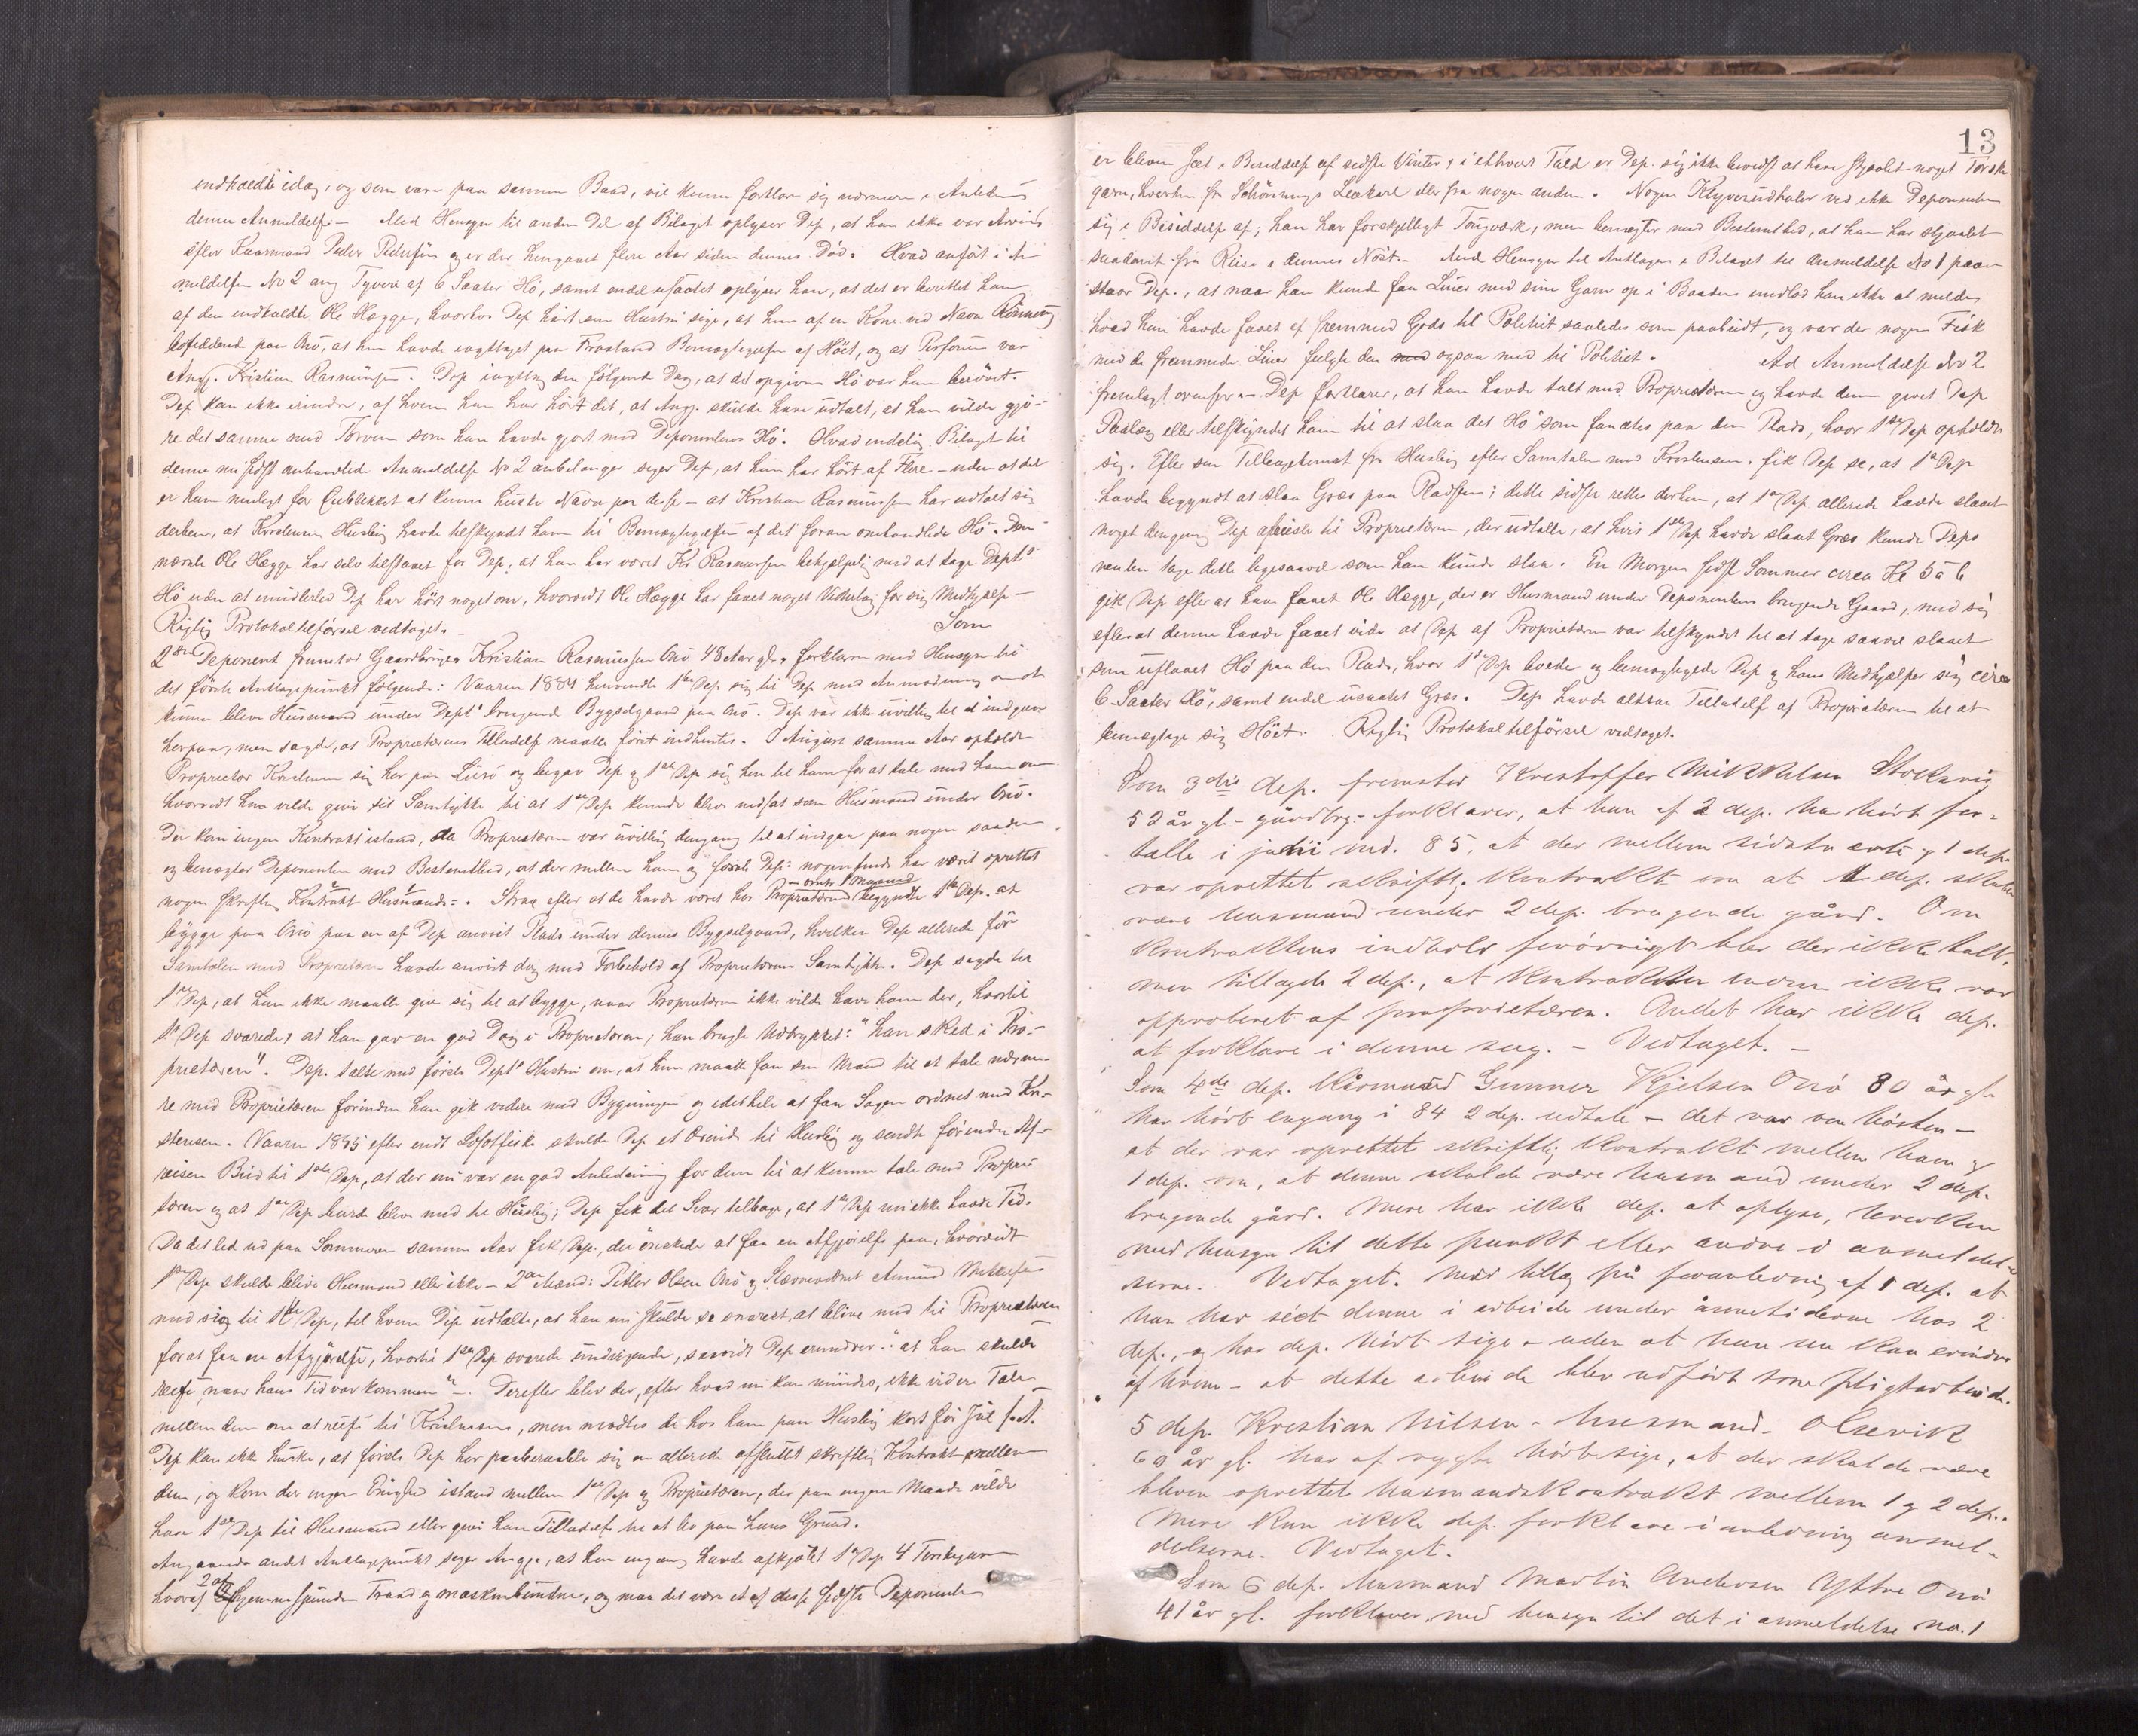 indkaldte idag, og som vare paa samme Baad, vil kunne forklare sig nærmere i Anledn
denne Anmeldelse - Med Hensyn til anden Del af Bilaget oplyser Dep, at han ikke var Arving
efter Kaarmand Peder Pedersen og er der hengaaet flere Aar siden dennes Död. Hvad anfört i An
meldelsen No 2 ang Tyveri af 6 Saater Hö, samt endel usaatet oplyser han, at det er berettet ham
af den indkaldte Ole Hægge, hvorhos Dep hört sin Hustru sige, at hun af en Kone ved Navn Rönnaug
bosiddende paa Onö, at hun havde iagttaget paa Frastand Bemægtigelsen af Höet, og at Personen var
Ang. Kristian Rasmussen. Dep iagttog den fölgende Dag, at det opgivne Hö var ham berövet.
Dep kan ikke erindre, af hvem han har hört det, at Ang. skulde have udtalt, at han vilde gjö-
re det samme med Torven som han havde gjort med Deponentens Hö. Hvad endelig Bilaget til
denne nu sidst anhandlede Anmeldelse No 2 anbelanger siger Dep, at han har hört af Flere - uden at det
er ham muligt for Öieblikket at kunne huske Navn paa disse - at Kristian Rasmussen har udtalt sig
derhen, at Kristensen Husby havde tilskyndt ham til Bemægtigelsen af det foran omhandlede Hö. Den
nævnte Ole Hægge har selv tilstaaet for Dep, at han har været Kr Rasmussen behjælpelig med at tage Depts
Hö uden at imidlertid Dep har hört noget om, hvorvidt Ole Hægge har faaet noget Vederlag for sin Medhjælp -
Rigtig Protokoltilförsel vedtaget. - Som
2den Deponent fremstod Gaardbruger Kristian Rasmussen Onö 48 Aar gl. forklarer med Hensyn til
det förste Anklagepunkt fölgende: Vaaren 1884 henvendte 1ste Dep sig til Dep med Anmodning om at
kunne blive Husmand under Depts brugende Bygselgaard paa Onö. Dep var ikke uvillig til at indgaa
herpaa, men sagde, at Proprietærens Tilladelse maatte först indhentes. I August samme Aar opholdt
Proprietær Kristensen sig her paa Lurö og begav Dep og 1ste Dep sig hen til ham for at tale med ham om
hvorvidt han vilde give sit Samtykke til at 1ste Dep kunde blive nedsat som Husmand under Onö.
Der kom ingen Kontrakt istand, da Proprietæren var uvillig dengang til at indgaa paa nogen saadan
og benægter Deponenten med Bestemthed, at der mellem ham og förste Dep: nogensinde har været oprettet
nogen skriftlig Kontrakt Husmands=. Strax efter at de havde været hos Proprietæren - omtr 1 Maaned - begyndte 1ste Dep. at
bygge paa Onö paa en af Dep anvist Plads under dennes Bygselgaard, hvilken Dep allerede för
Samtalen med Proprietæren havde anvist dog med Forbehold af Proprietærens Samtykke. Dep sagde til
1ste Dep, at han ikke maatte give sig til at bygge, naar Proprietæren ikke vilde have ham der, hvortil
1ste Dep svarede, at han gav en god Dag i Proprietæren; han brugte Udtrykket: "han sked i Pro-
prietæren". Dep. talte med förste Depts Hustru om, at hun maatte faa sin Mand til at tale nærme-
re med Proprietæren forinden han gik videre med Bygningen og idethele at faa Sagen ordnet med Kri-
stensen. Vaaren 1885 efter endt Lofotfiske skulde Dep et Ærinde til Husby og sendte förinden Af-
reisen Bud til 1ste Dep, at der nu var en god Anledning for dem til at kunne tale med Proprie
tæren og at 1ste Dep burde blive med til Husby; Dep fik det Svar tilbage, at 1ste Dep nu ikke havde Tid.
Da det led ud paa Sommeren samme Aar fik Dep, der önskede at faa en Afgjörelse paa, hvorvidt
1ste Dep skulde blive Husmand eller ikke - 2de Mænd: Petter Olsen Onö og Stævnevidnet Amund Mikkelsen
med sig til 1ste Dep, til hvem Dep udtalte, at han nu skulde se snarest at blive med til Proprietæren
for at faa en Afgjörelse, hvortil 1ste Dep svarede undvigende, saavidt Dep erindrer: "at han skulde
reise, naar hans Tid var kommen". Derefter blev der, efter hvad nu kan mindes, ikke videre Tale
mellem dem om at reise til Kristensen, men mödtes de hos ham paa Husby kort för Jul f.A.
Dep kan ikke huske, at förste Dep her paaberaabte sig en allerede afsluttet skriftlig Kontrakt mellem
dem, og kom der ingen Enighed istand mellem 1ste Dep og Proprietæren, der paa ingen Maade vilde
have 1ste Dep til Husmand eller give ham Tilladelse til at bo paa hans Grund.
Angaaende andet Anklagepunkt siger Ang., at han engang havde afkjöbt 1ste Dep 4 Torskegarn
hvoraf 2 af hjemmespunden Traad og maskinbundne, og maa det være et af disse sidste Deponenten
13
er bleven seet i Besiddelse af sidste Vinter; i ethvert Fald er Dep. sig ikke bevidst at have stjaalet noget Torske
garn, hverken fra Schönnings Leekarl eller fra nogen anden. Nogen Klyverudhaler ved ikke Deponenten
sig i Besiddelse af; han har forskjelligt Tougværk, men benægter med Bestemthed, at han har stjaalet
saadant fra Reisæ i dennes Nöst. - Med Hensyn til Anklagen i Bilaget til Anmeldelse No 1 paa-
staar Dep., at naar han kunde faa Liner med sine Garn op i Baaden undlod han ikke at melde,
hvad han havde faaet af fremmed Gods til Politiet saaledes som paabudt, og var der nogen Fisk
med de fremmede Liner fulgte den ogsaa med til Politiet. Ad Anmeldelse No 2
fremlagt ovenfor - Dep forklarer, at han havde talt med Proprietæren og havde denne givet Dep
Paalæg eller tilskyndet ham til at slaa det Hö som fandtes paa den Plads, hvor 1ste Dep opholdt
sig. Efter sin Tilbagekomst fra Husby efter Samtalen med Kristensen, fik Dep se, at 1ste Dep
havde begyndt at slaa Græs paa Pladsen; dette sidste rettes derhen, at 1ste Dep allerede havde slaaet
noget dengang Dep afreiste til Proprietæren, der udtalte, at hvis 1ste Dep havde slaaet Græs kunde Depo
nenten tage dette ligesaavel som han kunde slaa. En Morgen sidst Sommer circa Kl 5 à 6
gik Dep efter at have faaet Ole Hægge, der er Husmand under Deponentens brugende Gaard, med sig
efterat denne havde faaet vide at Dep af Proprietæren var tilskyndet til at tage saavel slaaet
som uslaaet Hö paa den Plads, hvor 1ste Dep boede og bemægtigede Dep og hans Medhjælper sig circa
6 Saater Hö, samt endel usaatet Græs. Dep havde altsaa Tilladelse af Proprietæren til at
bemægtige sig Höet. Rigtig Protokoltilförsel vedtaget.
Som 3die dep. fremstod Krestoffer Mikkelsen Stoksvig
52 år gl. - gårdbr. - forklarer, at han af 2 dep. har hört for-
talle i juli md. 85, at der mellem sidstnævnte og 1 dep.
var oprettet skriftl. kontrakt om at 1 dep. skulde
være husmand under 2 dep. brugende gård. Om
kontraktens indhold forövrigt blev der ikke talt,
men tillagde 2 dep., at kontrakten endnu ikke var
approberet af proprietæren. Andet har ikke dep.
at forklare i denne sag. - Vedtaget. -
Som 4de dep. Kårmand Gunner Kjelsen Onö 80 år gl.
har hört engang i 84 2 dep. udtale - det var om hösten -
at der var oprettet skriftlig kontrakt mellem ham og
1 dep. om, at denne skulde være husmand under 2 dep.
brugende gård. Mere har ikke dep. at oplyse, hverken
med hensyn til dette punkt eller andre i anmeldel-
serne. Vedtaget. Med tillæg på foranledning af 1 dep. at
han har séet denne i arbeide under ånnetiderne hos 2
dep., og har dep. hört sige - uden at han nu kan erindre
af hvem - at dette arbeide blev udfört som pligtarbeide.
5 dep. Krestian Nilsen - husmand - Olsevik
60 år gl. har af rygte hört sige, at der skulde være
bleven oprettet husmandskontrakt mellem 1 og 2 dep..
Mere kan ikke dep. forklare i anledning anmel-
delserne. Vedtaget.
Som 6 dep. husmand Martin Andersen Yttre Onö
41 år gl. forklarer med hensyn til det i anmeldelse no. 1